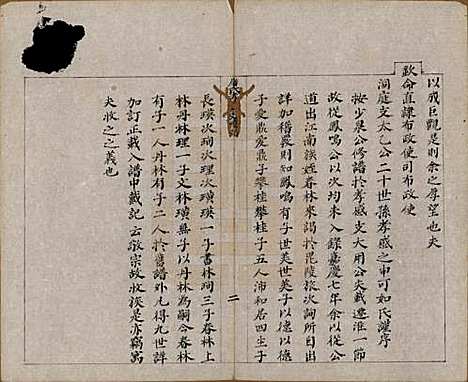 以成巨觀是則余之厚望也夫
欽命直隸布政使司布政使
洞庭支太乙公二十世孫孝感之中可如氏灌序
按少泉公修譜於孝感支大用公失載遷淮一節
故從鳳鳴公以次均未入錄嘉慶七年余以從公
道出江南族姪春林來謁於毘陵旅次詢所自出
詳加稽覈則知鳳鳴有子世英世英子以德以德
子愛鼎愛鼎子攀桂攀桂子五人沛和居四生子
二
長瑛次珣次理次璜瑛一子書林珣三子春林上
林丹林理一子文林璜無子以丹林為嗣今春林
有子一人丹林有子二人於舊譜外凡得九世詳
加訂正載入譜中戴記云敬宗故收族是亦竊寓
夫收之之義也